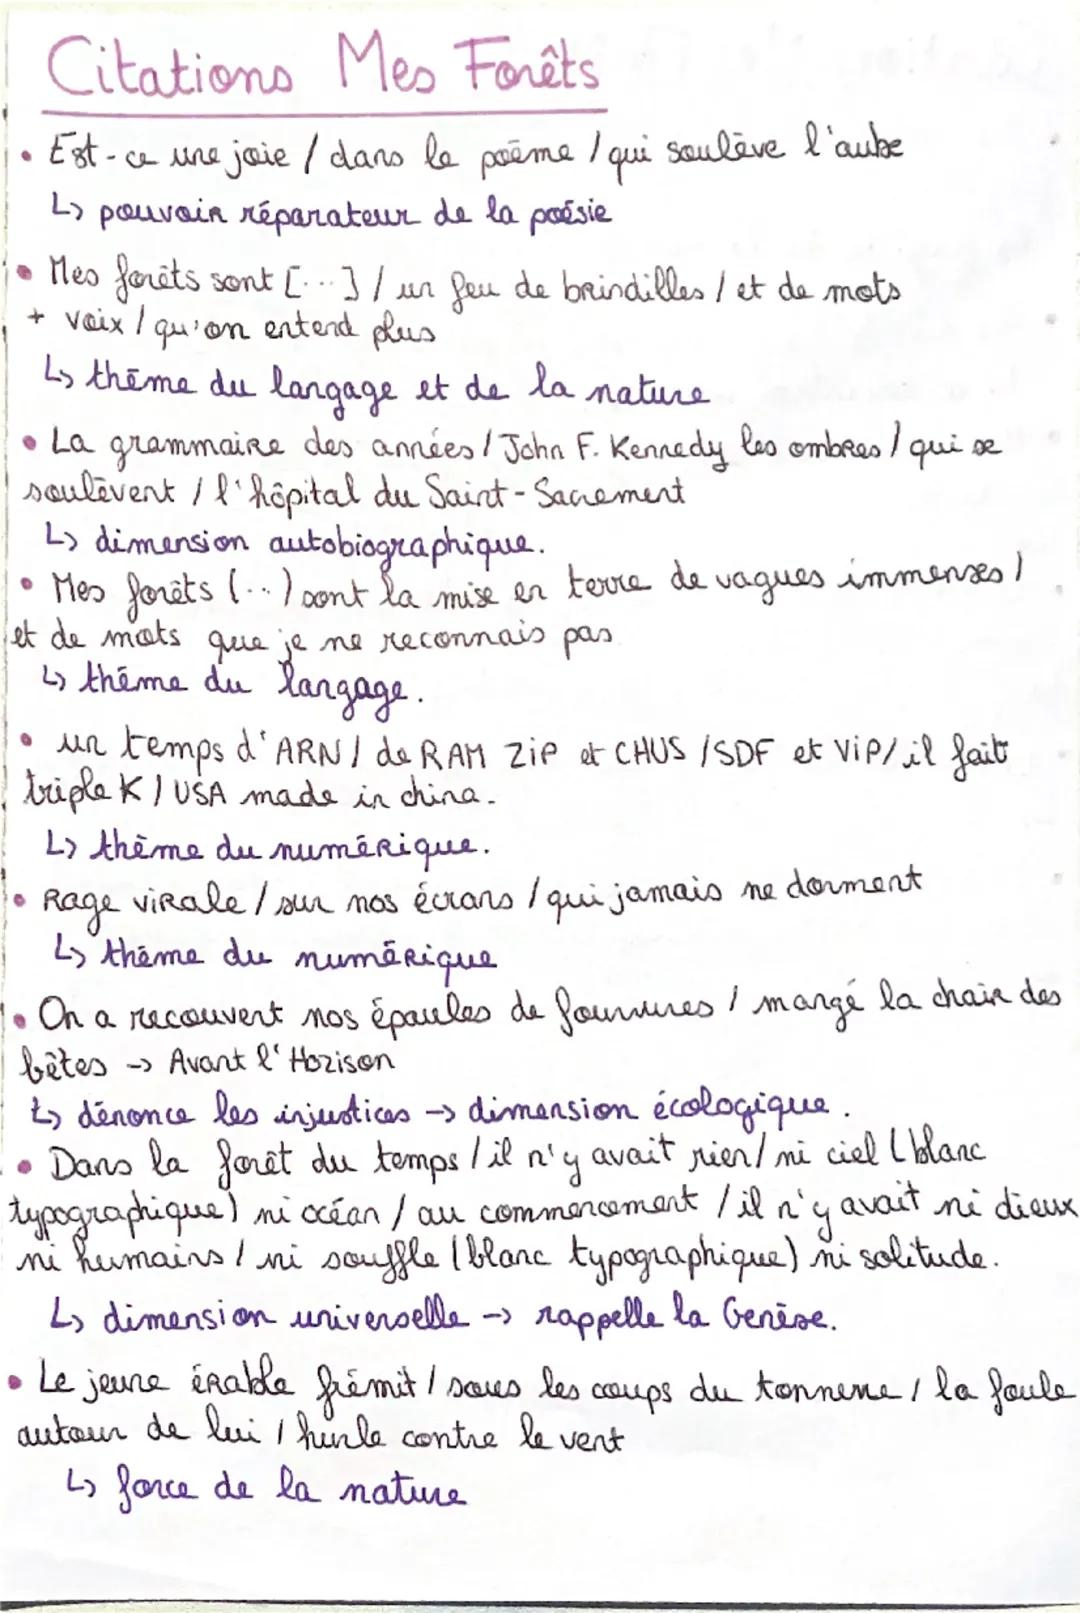 Citations Mes Forêts
• Est-ce une joie / dans le poème / qui soulève l'aube
↳ pouvoir réparateur de la poésie
• Mes forêts sont [...] / un feu de brindilles / et de mots
+ voix / qu'on entend plus
↳ thème du langage et de la nature
• La grammaire des années / John F. Kennedy les ombres / qui se
soulèvent / l'hôpital du Saint-Sacrement
↳ dimension autobiographique.
• Mes forêts (...) sont la mise en terre de vagues immenses /
et de mots que je ne reconnais pas
↳ thème du langage.
• un temps d'ARN / de RAM ZIP et CHUS / SDF et VIP / il fait
triple K / USA made in china.
↳ thème du numérique.
• Rage virale / sur nos écrans / qui jamais ne dorment
↳ thème du numérique
• On a recouvert nos épaules de fourrures / mangé la chair des
bêtes -> Avant l'Horison
↳ dénonce les injustices -> dimension écologique.
• Dans la forêt du temps / il n'y avait rien / ni ciel (blanc
typographique) ni océan / au commencement / il n'y avait ni dieux
ni humains / ni souffle (blanc typographique) ni solitude.
↳ dimension universelle -> rappelle la Genèse.
• Le jeune érable frémit / sous les coups du tonnerre / la foule
autour de lui / hurle contre le vent
↳ force de la nature